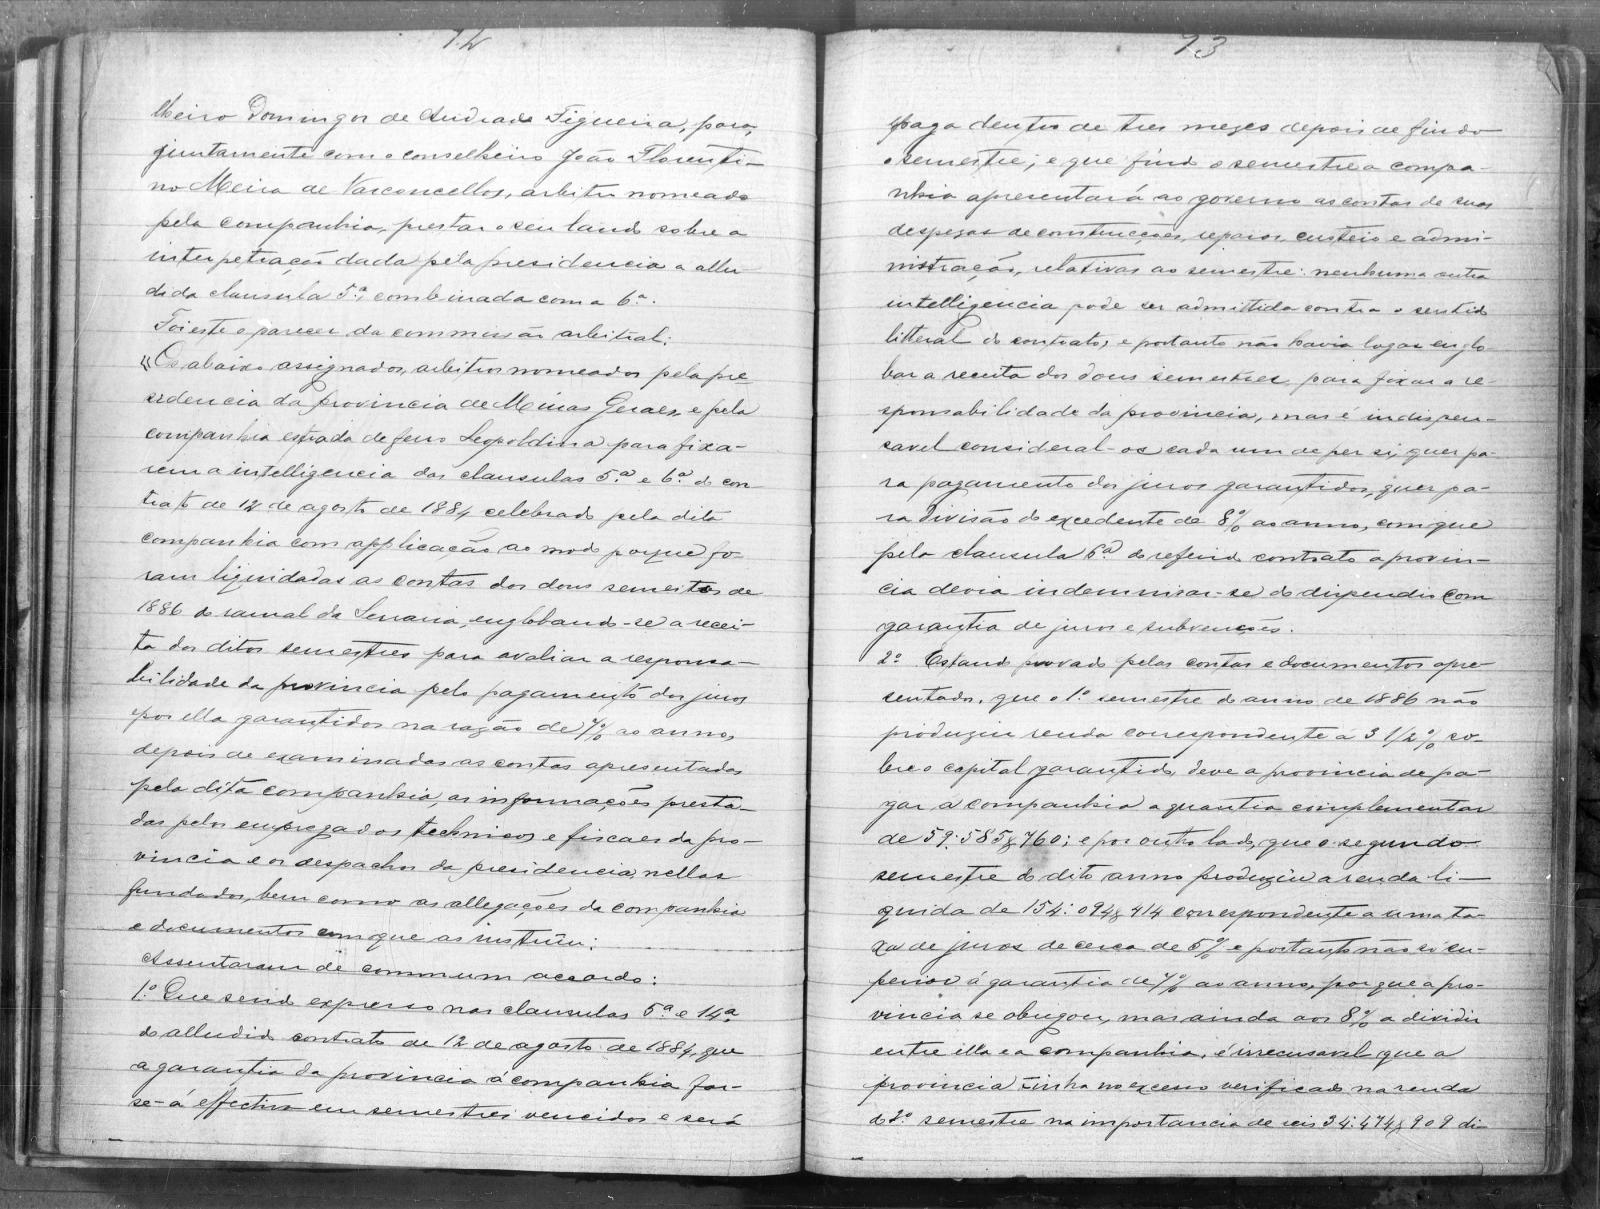 72
lheiro Domingos de Andrade Figueira, para,
juntamente com o conselheiro João Florenti-
no Meira de Vasconcellos, arbitro nomeado
pela companhia, prestar o seu laudo sobre a
interpetração dada pela presidencia a allu
dida clausula 5ª, combinada com a 6ª.
Foi este o parecer da commissão arbitral:
"Os abaixo assignados, arbitros nomeados pela pre
sidencia da provincia de Minas Geraes, e pela
companhia estrada de ferro Leopoldina para fixa-
rem a intelligencia das clausulas 5ª e 6ª do con
trato de 12 de agosto de 1884 celebrado pela dita
companhia com applicação ao modo porque fo-
ram liquidadas as contas dos dous semestres de
1886 do ramal da Serraria, englobando-se a recei-
ta dos ditos semestres para avaliar a responsa-
bilidade da provincia pelo pagamento dos juros
por ella garantidos na razão de 7% ao anno,
depois de examinadas as contas apresentadas
pela dita companhia, as informações presta-
das pelos empregados technicos e fiscaes da pro-
vincia e os despachos da presidencia nellas
fundados, bem como as allegações da companhia
e documentos com que as instrúiu:
Assentaram de commum accordo:
1º Que sendo expresso nas clausulas 5ª e 14ª
do alludido contrato de 12 de agosto de 1884, que
a garantia da provincia á companhia far-
se-á effectiva em semestres vencidos e será
73
paga dentro de tres mezes depois de findo
o semestre; e que findo o semestre a compa-
nhia apresentará ao governo as contas de suas
despezas de construcções, reparos, custeio e admi-
nistração, relativas ao semestre: nenhuma outra
intelligencia pode ser admittida contra o sentido
litteral do contrato, e portanto não havia logar englo-
bar a receita dos dous semestres para fixar a re-
sponsabilidade da provincia, mas é indispen-
savel consideral-os cada um de per si, quer pa-
ra pagamento dos juros garantidos, quer pa-
ra divisão do excedente de 8% ao anno, com que
pela clausula 6ª do referido contrato a provin-
cia devia indemnisar-se do dispendio com
garantia de juros e subvenções.
2º Estando provado pelas contas e documentos apre-
sentados, que o 1º semestre do anno de 1886 não
produziu renda correspondente a 3 1/2% so-
bre o capital garantido, deve a provincia de pa-
gar a companhia a quantia complementar
de 59:585$760; e por outro lado, que o segundo
semestre do dito anno produziu a renda li-
quida de 154:094$414 correspondente a uma ta-
xa de juros de cerca de 5% e portanto não só su-
perior á garantia de 7% ao anno, porque a pro-
vincia se obrigou, mas ainda aos 8% a dividir
entre ella e a companhia, é irrecusavel que a
provincia tinha no excesso verificado na renda
do 2º semestre na importancia de reis 34:474$909 di-